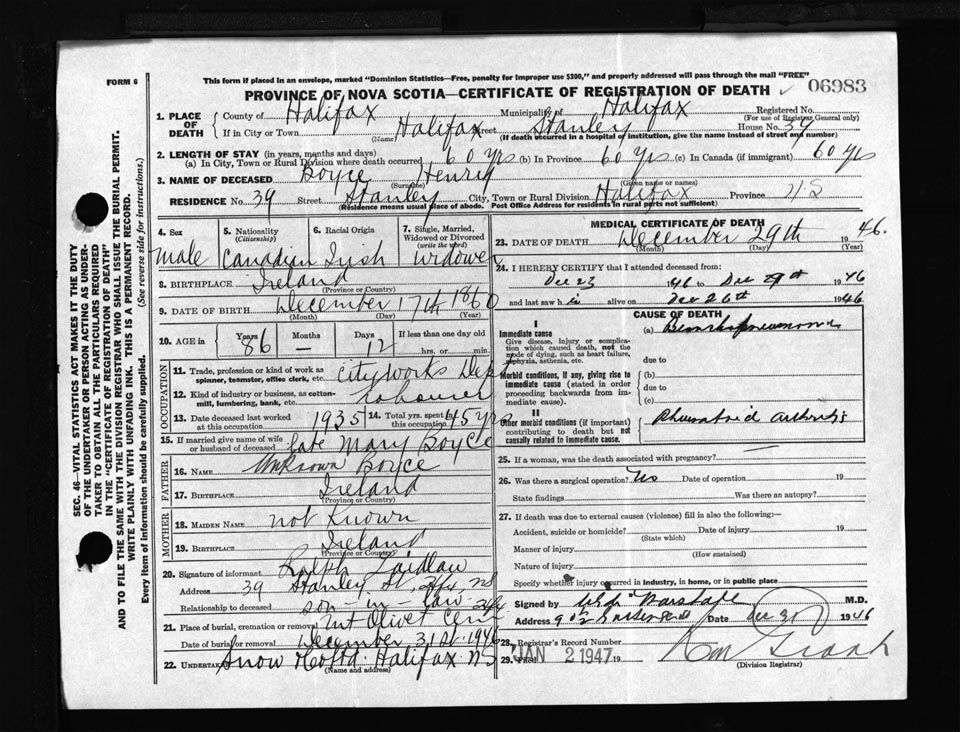 FORM 6
This form if placed in an envelope, marked "Dominion Statistics—Free, penalty for improper use $300," and properly addressed will pass through the mail "FREE"
PROVINCE OF NOVA SCOTIA—CERTIFICATE OF REGISTRATION OF DEATH 06983
1. PLACE OF DEATH { County of Halifax Municipality of Halifax Registered No.
(For use of Registrar General only)
If in City or Town Halifax Street Stanley House No. 39
(Name) (If death occurred in a hospital or institution, give the name instead of street and number)
2. LENGTH OF STAY (in years, months and days)
(a) In City, Town or Rural Division where death occurred 60 yrs (b) In Province 60 yrs (c) In Canada (if immigrant) 60 yrs
3. NAME OF DECEASED Boyce Henry
(Surname) (Given name or names)
RESIDENCE No. 39 Street Stanley City, Town or Rural Division Halifax Province N.S
(Residence means usual place of abode. Post Office Address for residents in rural parts not sufficient)
4. Sex 5. Nationality (Citizenship) 6. Racial Origin 7. Single, Married, Widowed or Divorced (write the word)
Male Canadian Irish Widower
8. BIRTHPLACE Ireland
(Province or Country)
9. DATE OF BIRTH December 17th 1860
(Month) (Day) (Year)
10. AGE in { Years Months Days If less than one day old
86 — 12 hrs. or min.
OCCUPATION
11. Trade, profession or kind of work as spinner, teamster, office clerk, etc. City Works Dept
12. Kind of industry or business, as cotton-mill, lumbering, bank, etc. Labourer
13. Date deceased last worked at this occupation 1935 14. Total yrs. spent at this occupation 45 yrs
15. If married give name of wife or husband of deceased late Mary Boyce
FATHER
16. NAME Unknown Boyce
17. BIRTHPLACE Ireland
(Province or Country)
MOTHER
18. MAIDEN NAME not Known
19. BIRTHPLACE Ireland
(Province or Country)
20. Signature of informant Ralph Laidlaw
Address 39 Stanley St. Hfx NS
Relationship to deceased son-in-law
21. Place of burial, cremation or removal Mt Olivet Cem Hfx
Date of burial or removal December 31st 1946
22. UNDERTAKER Snow & Co Ltd. Halifax NS
(Name and address)
MEDICAL CERTIFICATE OF DEATH
23. DATE OF DEATH December 29th 1946.
(Month) (Day) (Year)
24. I HEREBY CERTIFY that I attended deceased from:
Dec 23 1946 to Dec 29th 1946
and last saw h alive on Dec 26th 1946
CAUSE OF DEATH
I
Immediate cause (a) Bronchopneumonia
Give disease, injury or complication which caused death, not the mode of dying, such as heart failure, asphyxia, asthenia, etc.
due to
Morbid conditions, if any, giving rise to immediate cause (stated in order proceeding backwards from immediate cause).
(b)
due to
(c)
II
Other morbid conditions (if important) contributing to death but not causally related to immediate cause.
Rheumatoid arthritis
25. If a woman, was the death associated with pregnancy?
26. Was there a surgical operation? Date of operation 19
State findings Was there an autopsy?
27. If death was due to external causes (violence) fill in also the following:—
Accident, suicide or homicide? Date of injury 19
(State which)
Manner of injury
(How sustained)
Nature of injury
Specify whether injury occurred in industry, in home, or in public place
Signed by M.D.
Address Date Dec 30 1946
28. Registrar's Record Number
29. Filed JAN 2 1947 19
(Division Registrar)
SEC. 46—VITAL STATISTICS ACT MAKES IT THE DUTY
OF THE UNDERTAKER OR PERSON ACTING AS UNDER-
TAKER TO OBTAIN ALL THE PARTICULARS REQUIRED
IN THE "CERTIFICATE OF REGISTRATION OF DEATH"
AND TO FILE THE SAME WITH THE DIVISION REGISTRAR WHO SHALL ISSUE THE BURIAL PERMIT.
WRITE PLAINLY WITH UNFADING INK. THIS IS A PERMANENT RECORD.
Every item of information should be carefully supplied. (See reverse side for instructions.)